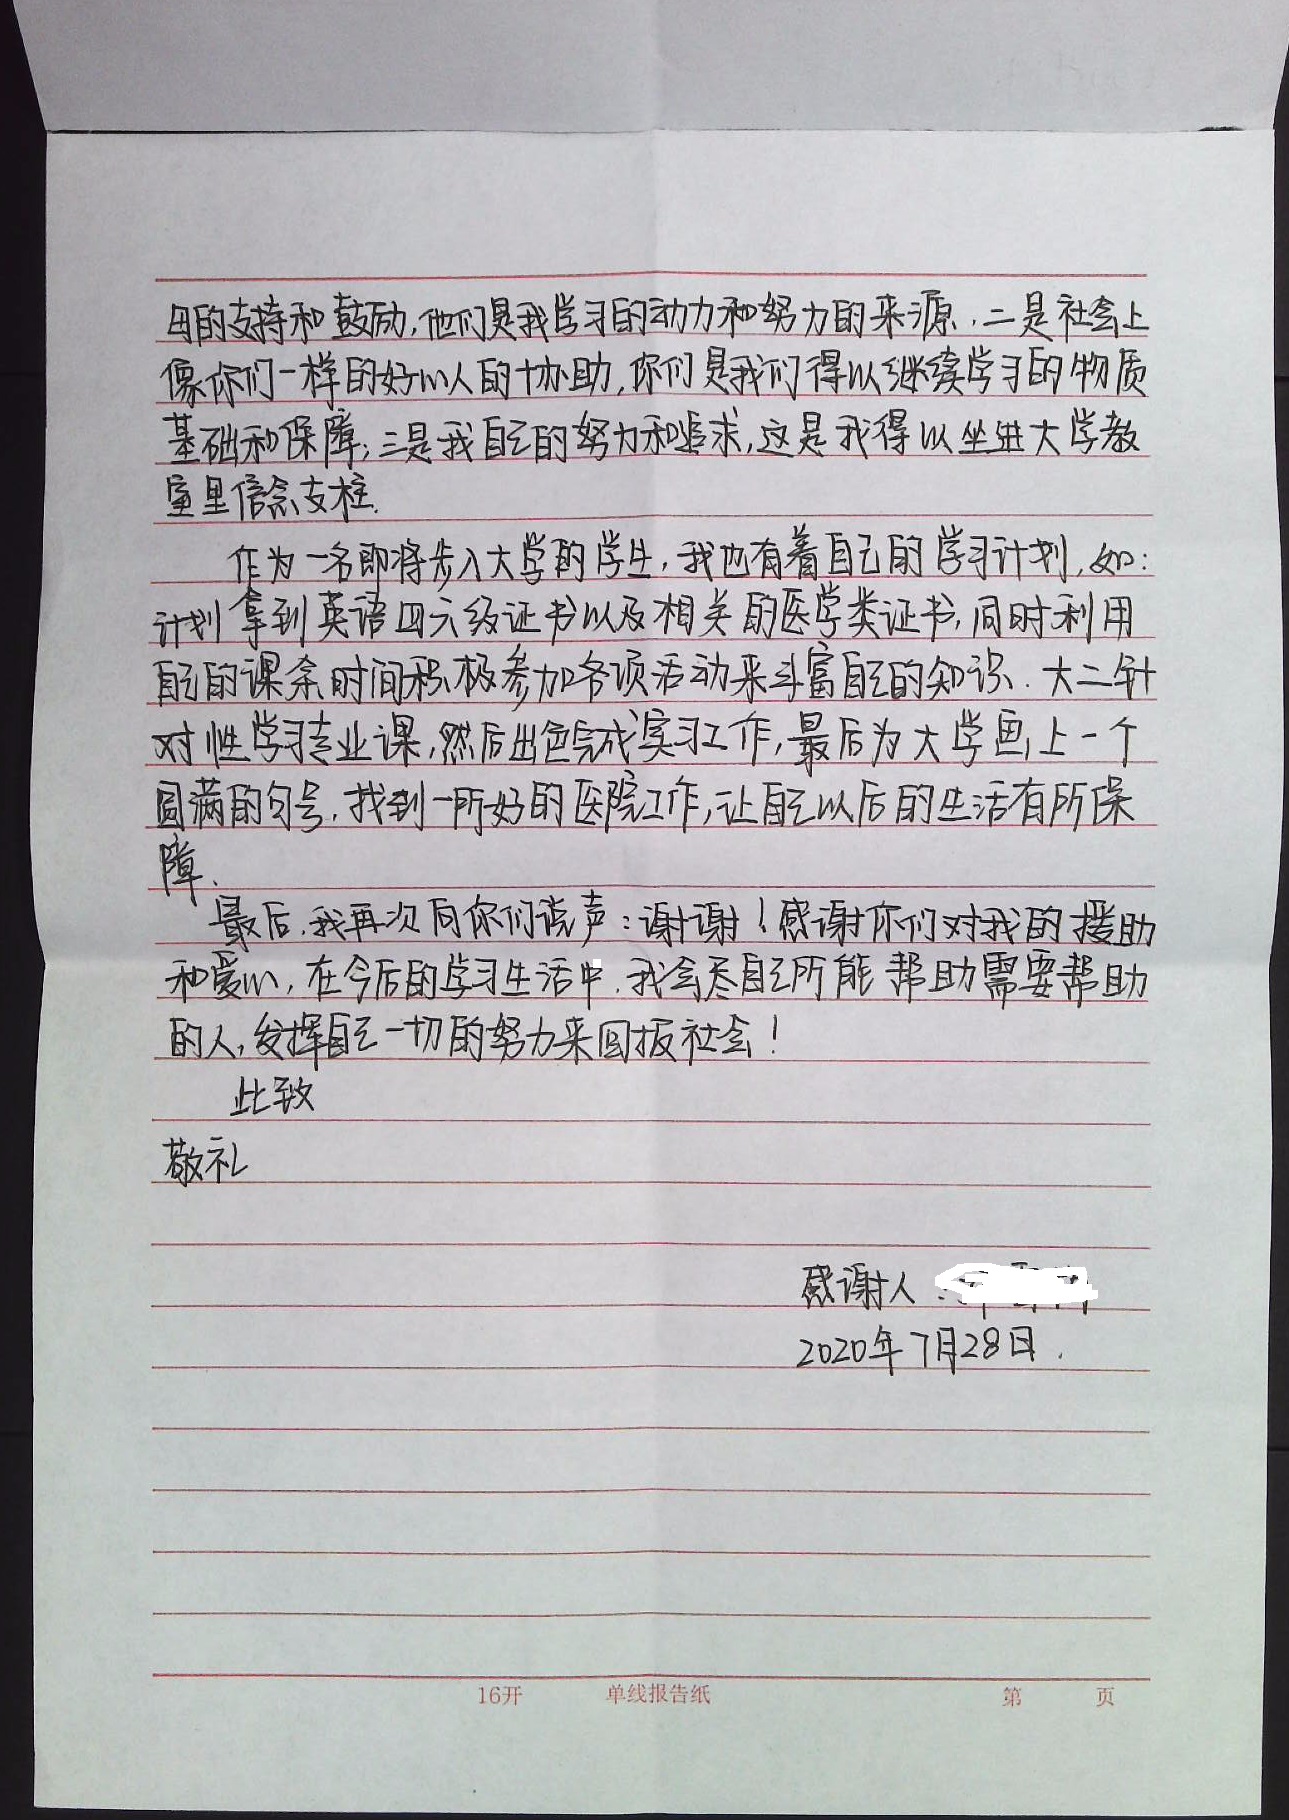 母的支持和鼓励,他们是我学习的动力和努力的来源.二是社会上
像你们一样的好心人的协助,你们是我们得以继续学习的物质
基础和保障;三是我自己的努力和追求,这是我得以坐进大学教
室里信念支柱.
作为一名即将步入大学的学生,我也有着自己的学习计划,如:
计划拿到英语四六级证书以及相关的医学类证书,同时利用
自己的课余时间积极参加各项活动来丰富自己的知识.大二针
对性学习专业课,然后出色完成实习工作,最后为大学画上一个
圆满的句号.找到一所好的医院工作,让自己以后的生活有所保
障.
最后,我再次向你们说声:谢谢!感谢你们对我的援助
和爱心,在今后的学习生活中.我会尽自己所能帮助需要帮助
的人,发挥自己一切的努力来回报社会!
此致
敬礼
感谢人:
2020年7月28日.
16开 单线报告纸 第 页